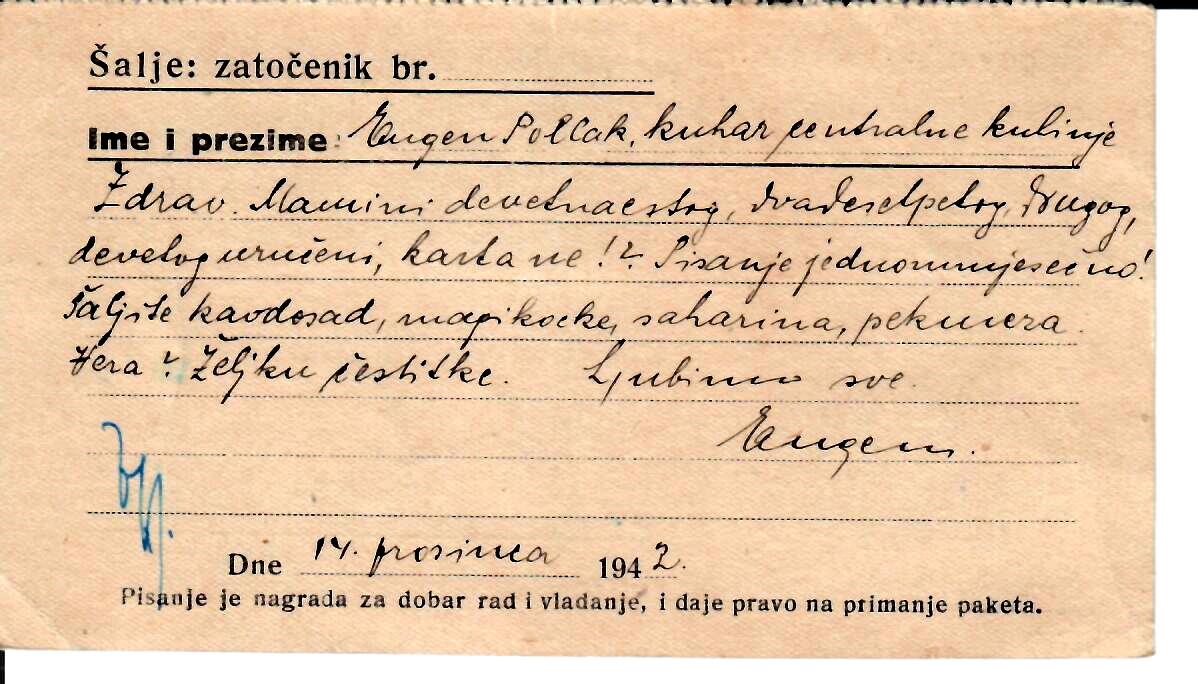 Šalje: zatočenik br.
Ime i prezime: Eugen Pollak, kuhar centralne kuhinje
Zdrav. Mamini devetnaestog, dvadesetpetog, drugog,
devetog uručeni, karta ne!? Pisanje jednommjesečno!
Šaljite kavdosad, magikocke, saharina, pekmeza.
Vera? Željku čestitke. Ljubimo sve.
Eugen.
Dne 14. prosinca 1942.
Pisanje je nagrada za dobar rad i vladanje, i daje pravo na primanje paketa.